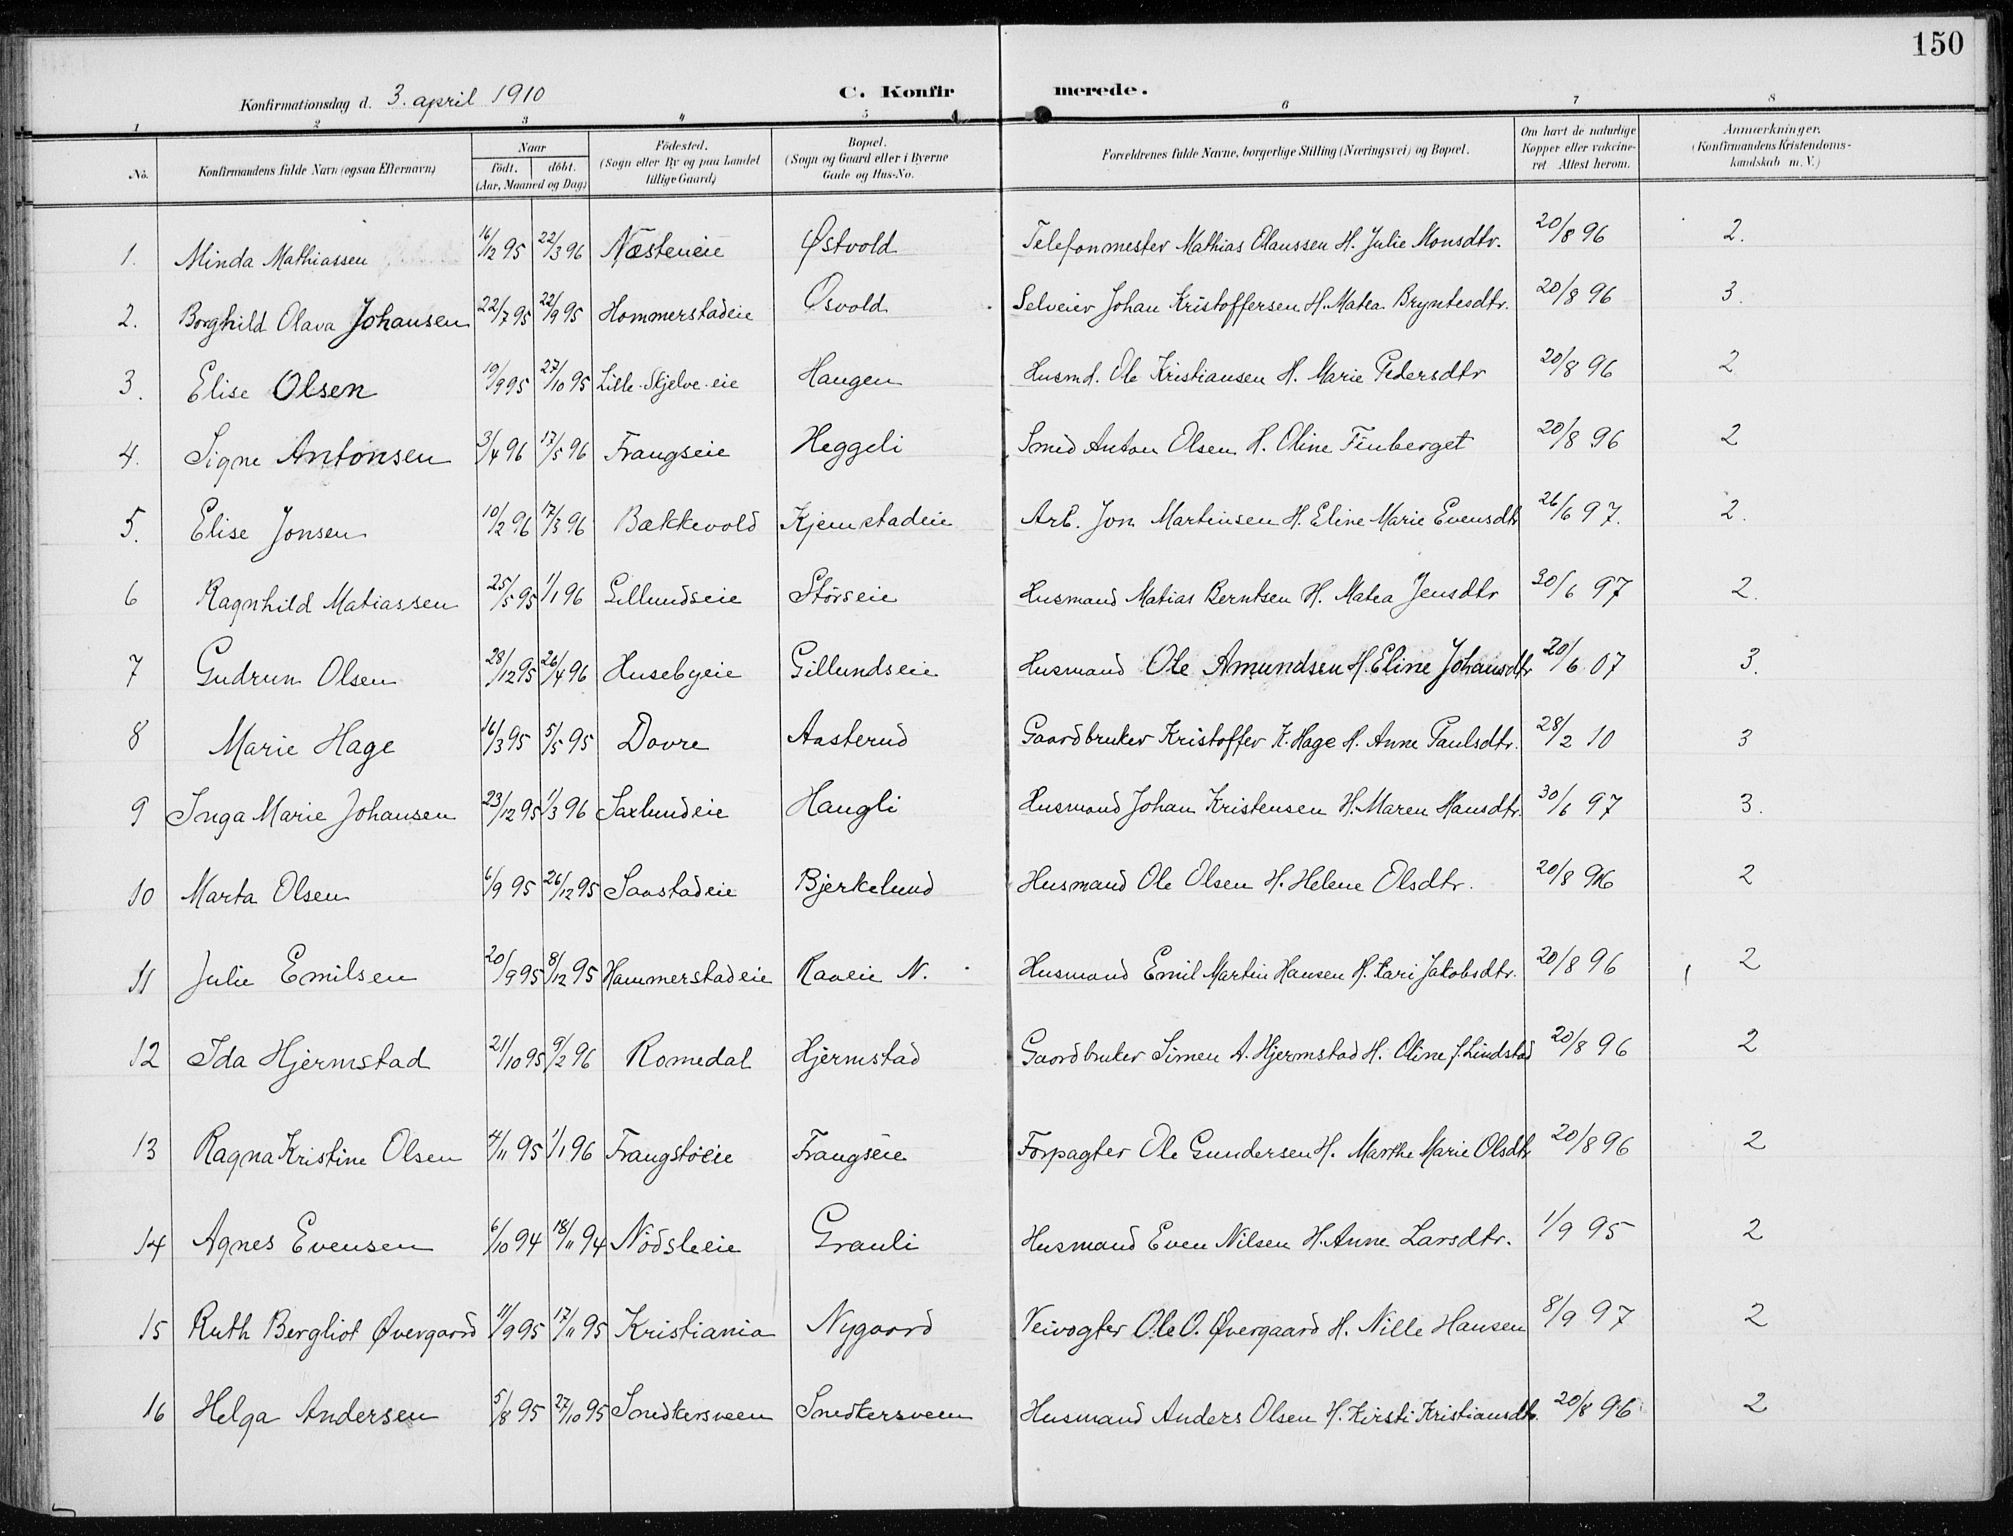 150
Konfirmationsdag d. 3. april 1910 C. Konfirmerede.
1 2 3 4 5 6 7 8
No. Konfirmandens fulde Navn (ogsaa Efternavn) Naar født. døbt. (Aar, Maaned og Dag) Fødested. (Sogn eller By og paa Landet tillige Gaard) Bopæl. (Sogn og Gaard eller i Byerne Gade og Hus-No. Forældrenes fulde Navne, borgerlige Stilling (Næringsvei) og Bopæl. Om havt de naturlige Kopper eller vakcineret. Attest herom. Anmerkninger. (Konfirmandens Kristendomskundskab m. V.)
1. Minda Mathiassen 16/12 95 22/3 96 Næsteneie Østvold Telefonmester Mathias Olaussen H. Julie Monsdtr. 20/8 96 2.
2. Borghild Olava Johansen 22/7 95 22/9 95 Hommerstadeie Osvold Selveier Johan Kristoffersen H. Matea Bryntesdtr. 20/8 96 3.
3. Elise Olsen 19/9 95 27/10 95 Lille-Skjelve-eie Haugen Husmd. Ole Kristiansen H. Marie Pedersdtr 20/8 96 2
4. Signe Antonsen 3/4 96 17/5 96 Frangseie Heggeli Smed Anton Olsen H. Oline Finberget 20/8 96 2
5. Elise Jonsen 10/2 96 17/3 96 Bækkevold Kjemstadeie Arb. Jon Martinsen H. Eline Marie Evensdtr 26/6 97. 2.
6 Ragnhild Matiassen 25/5 95 1/1 96 Gillundseie Størseie Husmand Matias Berntsen H. Matea Jensdtr 30/6 97 2.
7 Gudrun Olsen 28/12 95 26/4 96 Husebyeie Gillundseie Husmand Ole Amundsen H. Eline Johansdtr 20/6 07 3.
8 Marie Hage 16/3 95 5/5 95 Dovre Aasterud Gaardbruker Kristoffer K. Hage H. Anne Paulsdtr. 28/2 10 3
9 Inga Marie Johansen 23/12 95 1/3 96 Saxlundeie Haugli Husmand Johan Kristensen H. Maren Hansdtr. 30/6 97 3.
10 Marta Olsen 6/9 95 26/12 95 Saastadeie Bjerkelund Husmand Ole Olsen H. Helene Olsdtr. 20/8 96 2
11 Julie Emilsen 20/9 95 8/12 95 Hammerstadeie Raaeie N. Husmand Emil Martin Hansen H. Kari Jakobsdtr. 20/8 96 2
12 Ida Hjermstad 21/10 95 9/2 96 Romedal Hjermstad Gaardbruker Simen A. Hjermstad H. Oline J. Lindstad 20/8 96 2
13 Ragna Kristine Olsen 4/11 95 1/1 96 Frangstøeie Frangseie Forpagter Ole Gundersen H. Marthe Marie Olsdtr 20/8 96 2
14 Agnes Evensen 6/10 94 18/11 94 Nødsleeie Granli Husmand Even Nilsen H. Anne Larsdtr. 1/9 95 2
15 Ruth Bergliot Øvergaard 11/9 95 17/11 95 Kristiania Nygaard Veivogter Ole O. Øvergaard H. Nille Hansen 8/9 97 2
16 Helga Andersen 5/8 95 27/10 95 Snedkersveen Snedkersveen Husmand Anders Olsen H. Kirsti Kristiansdtr. 20/8 96 2